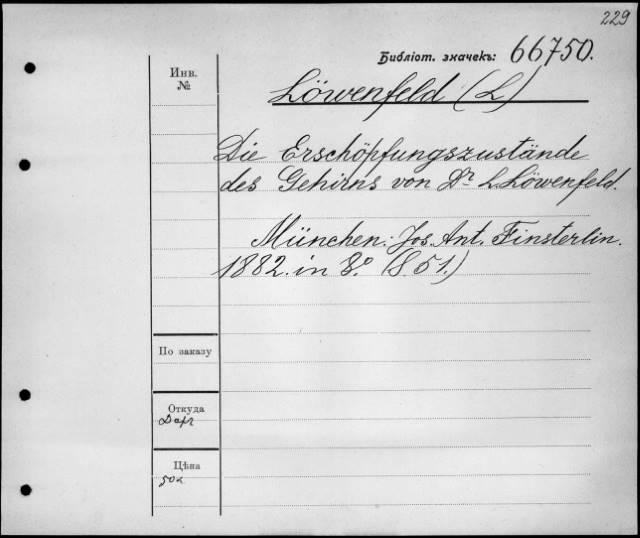 229
Библіот. значекъ: 66750.
Инв.
№
Löwenfeld (L)
Die Erschöpfungszustände
des Gehirns von Dr. L. Löwenfeld.
München: Jos. Ant. Finsterlin.
1882. in 8.° (S. 51.)
По заказу
Откуда
Даръ
Цѣна
50к